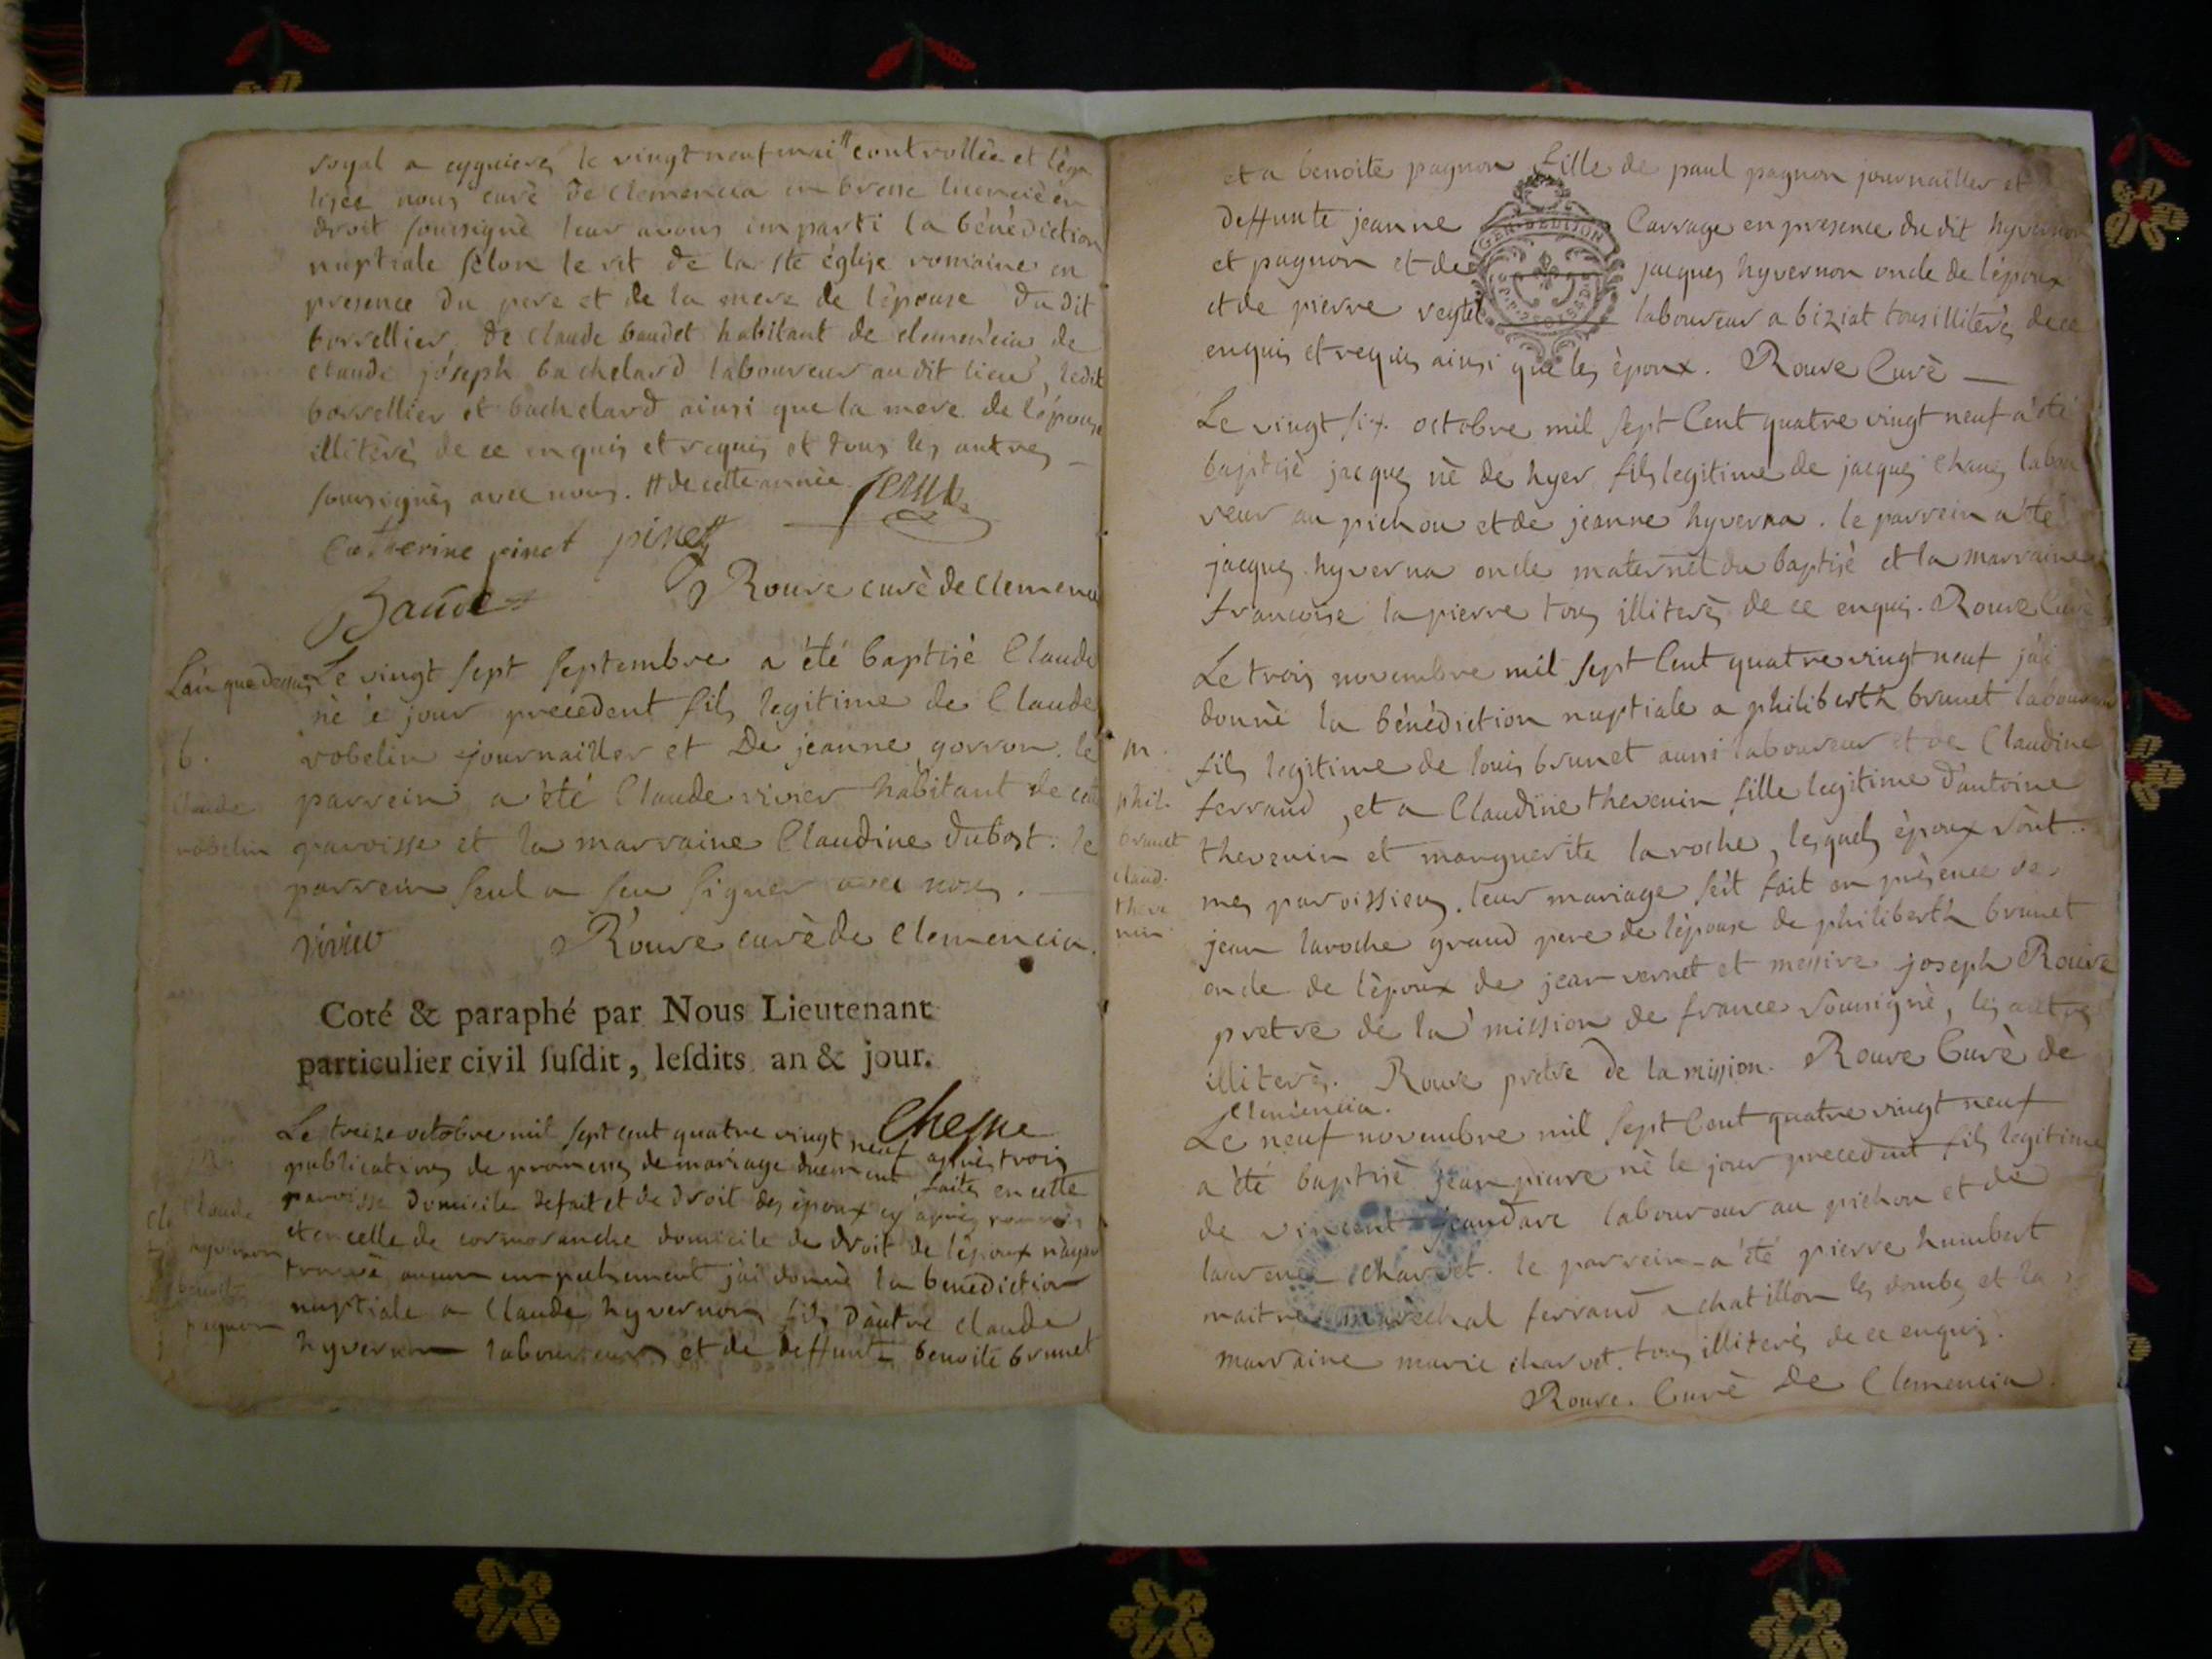 royal a eyguieres le vingt neuf mai # controllée et léga
lisée nous curé de clemencia en bresse licencié en
droit soussigné leur avons imparti la bénédiction
nuptiale sèlon le rit de la ste église romaine en
presence du pere et de la mere de l'épouse du dit
borrellier, de claude baudet habitant de clemencia de
claude jóseph bachelard laboureur au dit lieu, ledit
borrellier et bachelard ainsi que la mere de l'épouse
illitèrés de ce enquis et requis et tous les autres
soussignés avec nous. # de cette année
catherine pinet pinet
Baudet Rouve curè de clemencia
L'an que dessus Le vingt sept septembre a été baptisé Claude
né le jour precedent fils legitime de Claude
b. robelin journailler et de jeanne gorron. le
claude parrein a été Claude vivier habitant de cette
robelin paroisse et la marraine Claudine dubost. le
parrein seul a seu signer avec nous.
vivier Rouve curè de clemencia.
Coté & paraphé par Nous Lieutenant
particulier civil ſuſdit, leſdits an & jour.
Chesne
Le treize octobre mil sept cent quatre vingt neuf après trois
publications de promesses de mariage duement faites en cette
paroisse domicile de fait et de droit des époux cy après nommés
et en celle de cormoranche domicile de droit de l'époux n'ayant
trouvé aucun empechement j'ai donné la benediction
nuptiale a Claude hyvernon fils d'autre claude
hyvernon laboureur et de deffunte benoite brunet
claude
hyvernon
benoite
pagnon
et a benoite pagnon fille de paul pagnon journailler et
deffunte jeanne Carrage en presence du dit hyvernon
et pagnon et de jacques hyvernon oncle de l'époux
et de pierre laboureur a biziat tous illiterés de ce
enquis et requis ainsi que les époux. Rouve Curè
GEN. DE DIJON
Le vingt six octobre mil sept Cent quatre vingt neuf a été
baptisé jacques né de hyer fils legitime de jacques chanes labou
reur au pichou et de jeanne hyverna. le parrein a été
jacques hyverna oncle maternel du baptisé et la marraine
francoise lapierre tous illiterés de ce enquis. Rouve Curè
Le trois novembre mil sept Cent quatre vingt neuf j'ai
donné la bénédiction nuptiale a philiberth brunet laboureur
m. fils legitime de louis brunet aussi laboureur et de Claudine
phil. ferrand, et a Claudine thevenin fille legitime d'antoine
brunet thevenin et marguerite laroche, lesquels époux sont
claud. mes paroissiens. leur mariage s'est fait en présence de
theve jean laroche grand pere de l'épouse de philiberth brunet
nin oncle de l'époux de jean vernet et messire joseph Rouve
pretre de la mission de france soussigné, les autres
illiterés. Rouve pretre de la mission. Rouve Curè de
Clemencia.
Le neuf novembre mil sept Cent quatre vingt neuf
a été baptisé jean pierre né le jour precedent fils legitime
de vincent jeandare laboureur au pichon et de
laurence charvet. le parrein a été pierre humbert
maitre maréchal ferrand a chatillon les dombes et la
marraine marie charvet. tous illiterés de ce enquis.
Rouve. Curè de Clemencia.